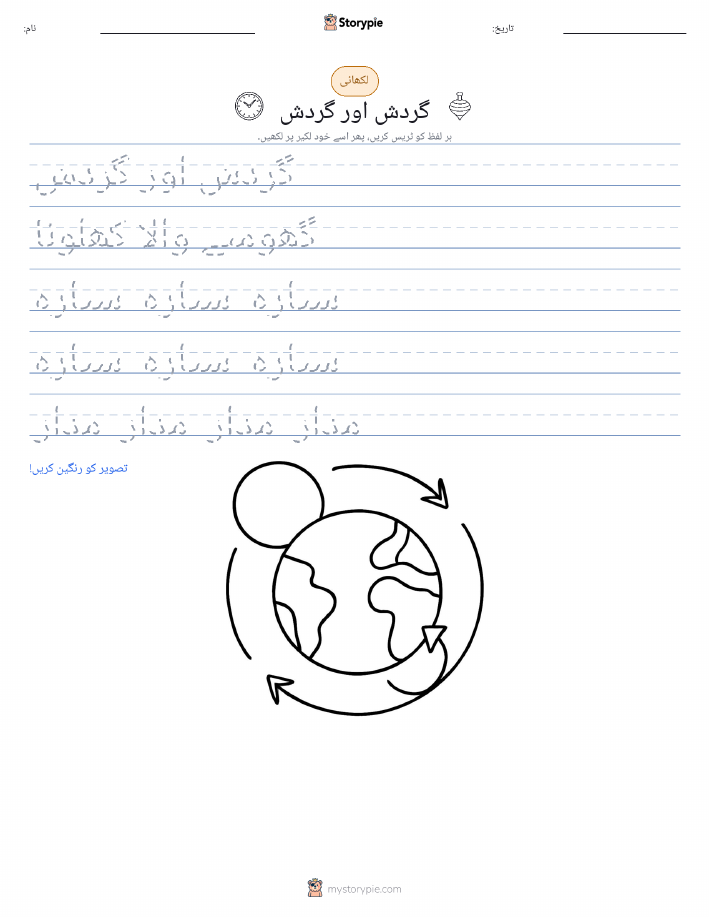 Storypie
نام:
تاریخ:
لکھائی
گردش اور گردش
ہر لفظ کو ٹریس کریں، پھر اسے خود لکیر پر لکھیں۔
گردش اور گردش
گھومنے والا کھلونا
ستارہ ستارہ ستارہ
ستارہ ستارہ ستارہ
مدار مدار مدار مدار
تصویر کو رنگین کریں!
mystorypie.com